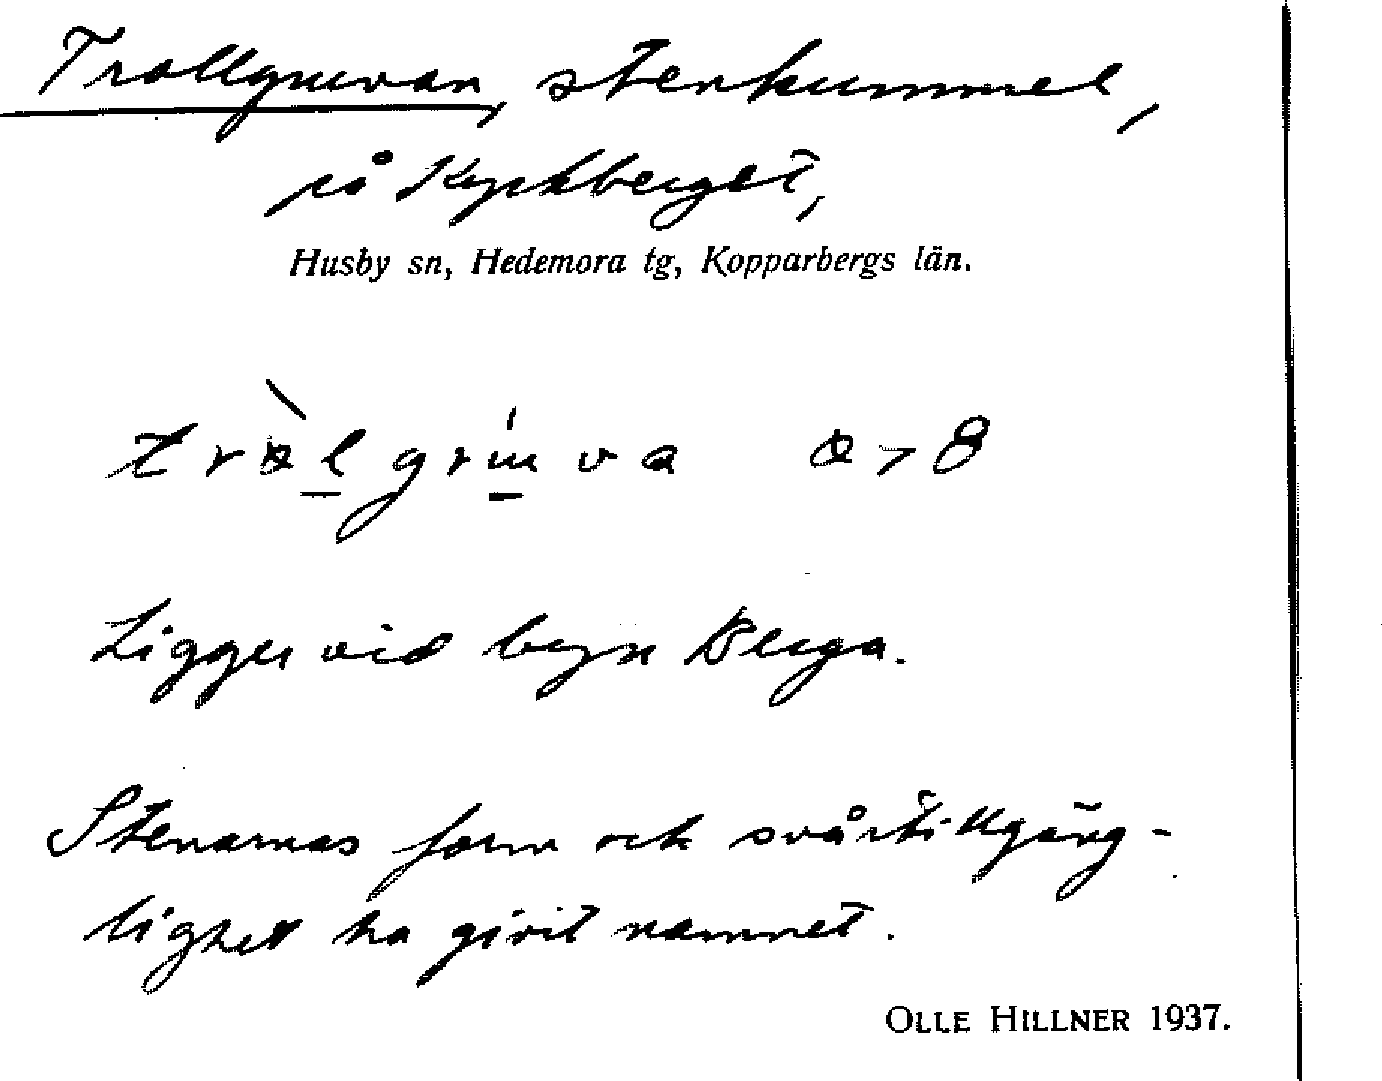 Trollgruvan, stenkummel,
på Kyckberget,
Husby sn, Hedemora tg, Kopparbergs län.
Ligger vid byn Berga.
Stenarnas form och svårtillgäng-
lighet ha givit namnet.
OLLE HILLNER 1937.